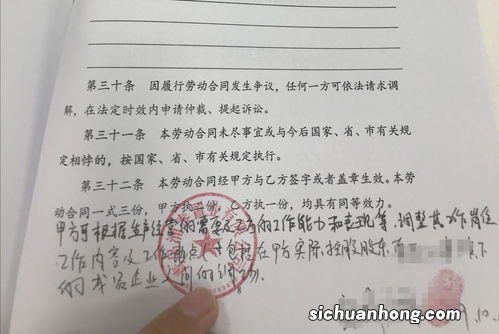 第三十条　因履行劳动合同发生争议，任何一方可依法请求调
解，在法定时效内申请仲裁、提起诉讼。
第三十一条　本劳动合同未尽事宜或与今后国家、省、市有关规
定相悖的，按国家、省、市有关规定执行。
第三十二条　本劳动合同经甲方与乙方签字或者盖章生效。本劳
动合同一式三份，甲方执二份，乙方执一份，均具有同等效力。
甲方可根据生产经营的需要及乙方的工作能力和表现等，调整其工作岗位
工作内容及工作地点，包括在甲方实际控股股东 下
的成员企业之间的调动。
9.10.
sichuanhong.com